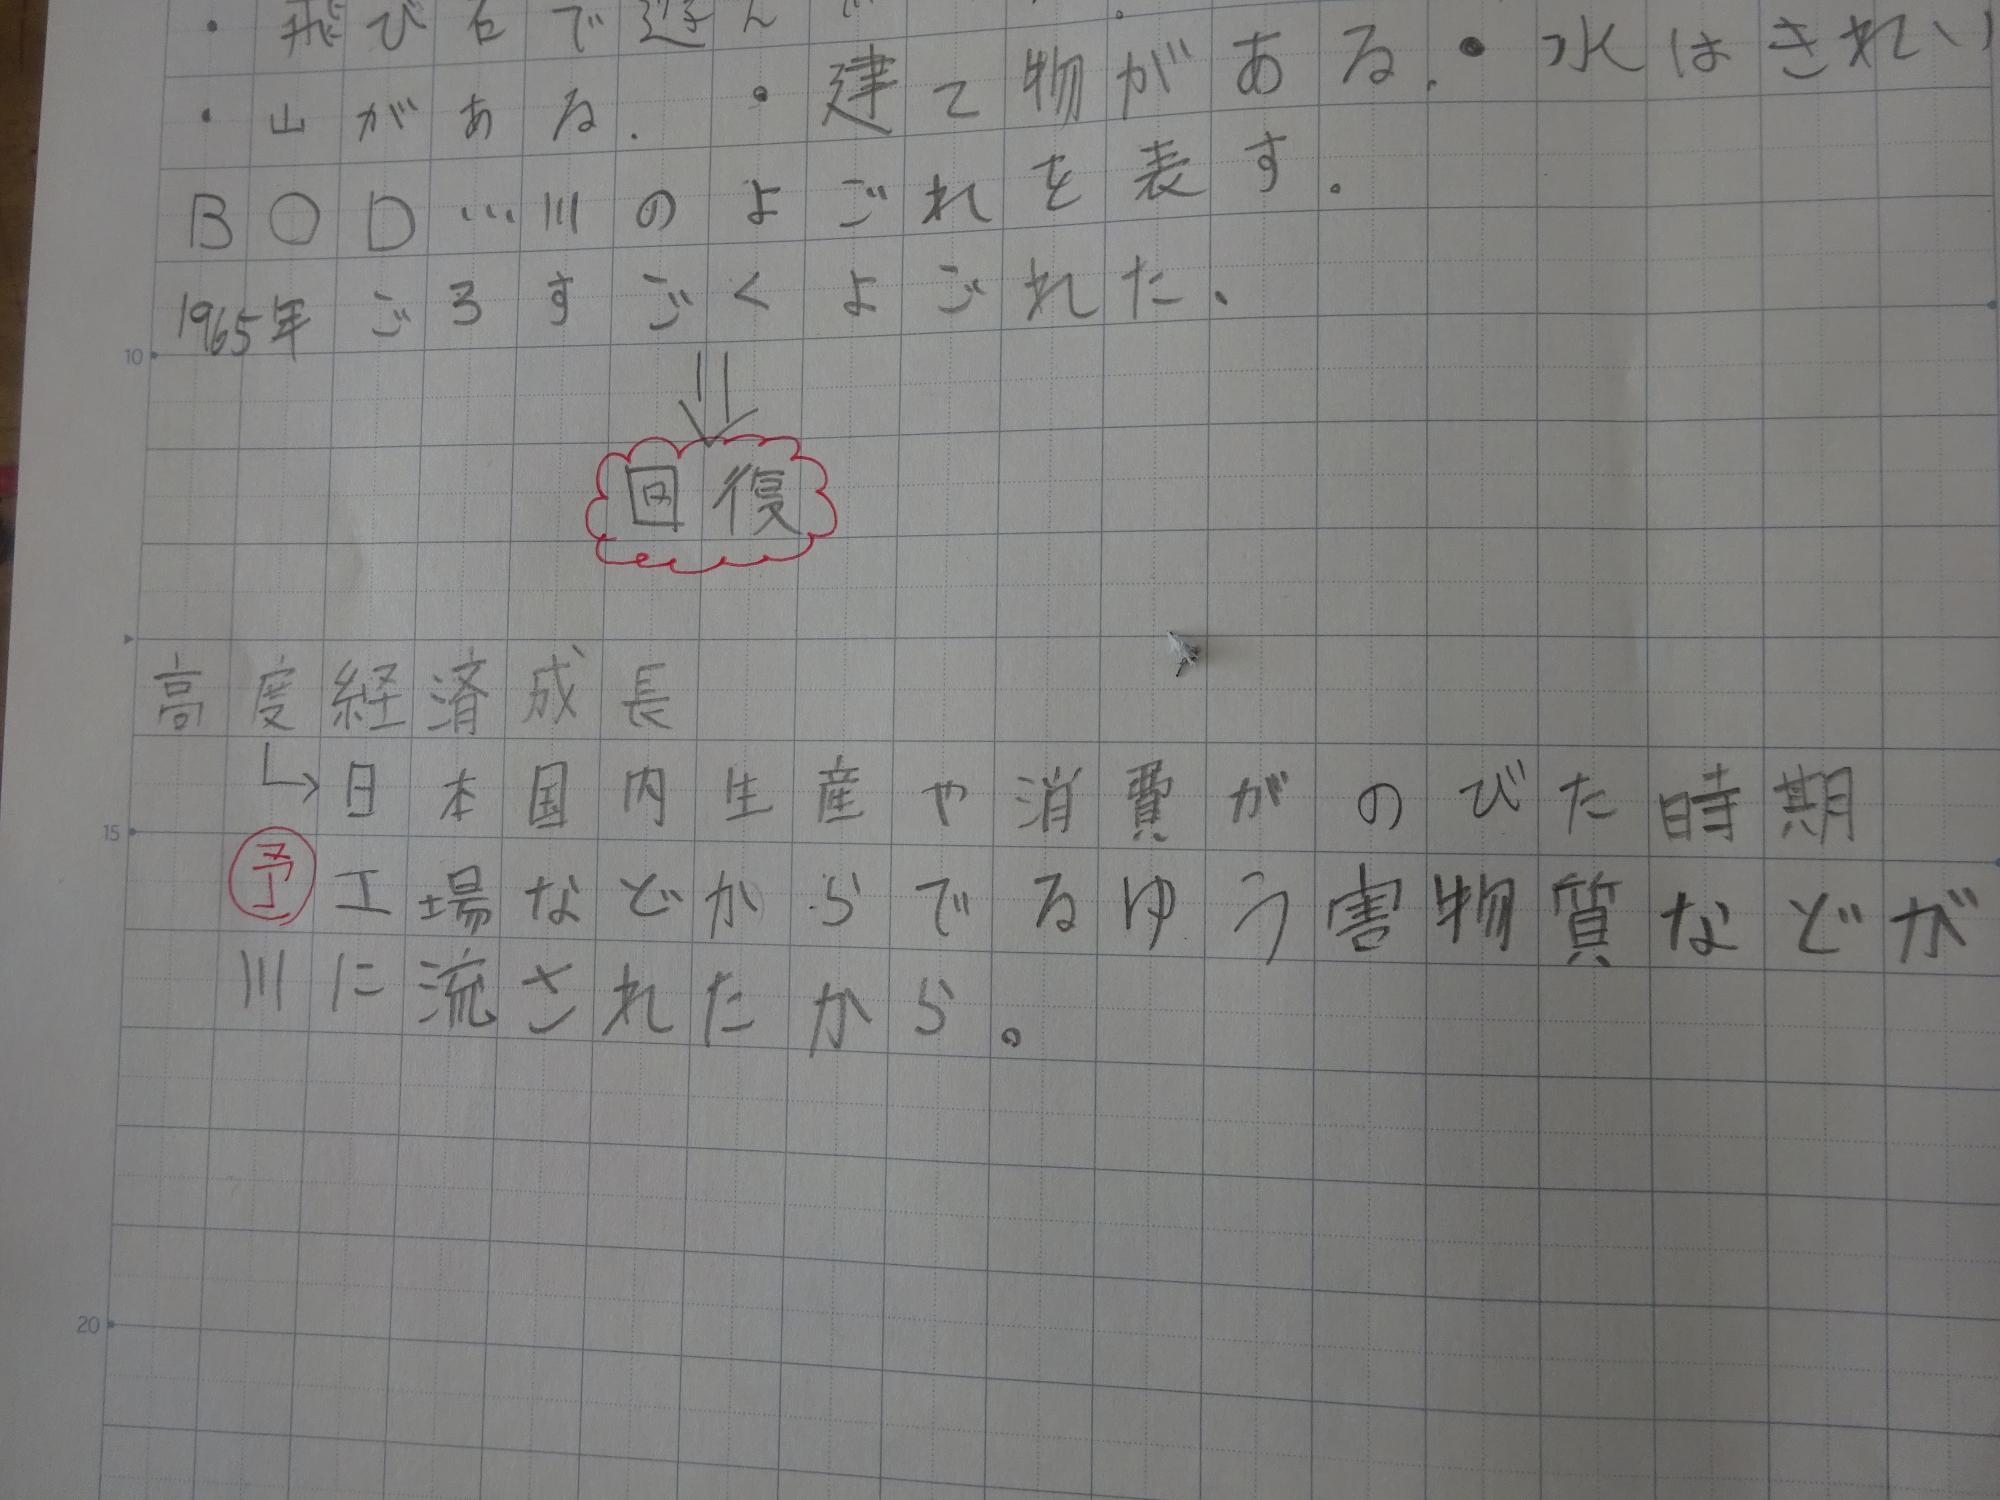 ・飛び石で遊んで
・山がある.　・建て物がある.・水はきれい
BOD…川のよごれを表す.
1965年ごろすごくよごれた.
10
回復
高度経済成長
↳日本国内生産や消費がのびた時期
15
予 工場などからでるゆう害物質などが
川に流されたから。
20